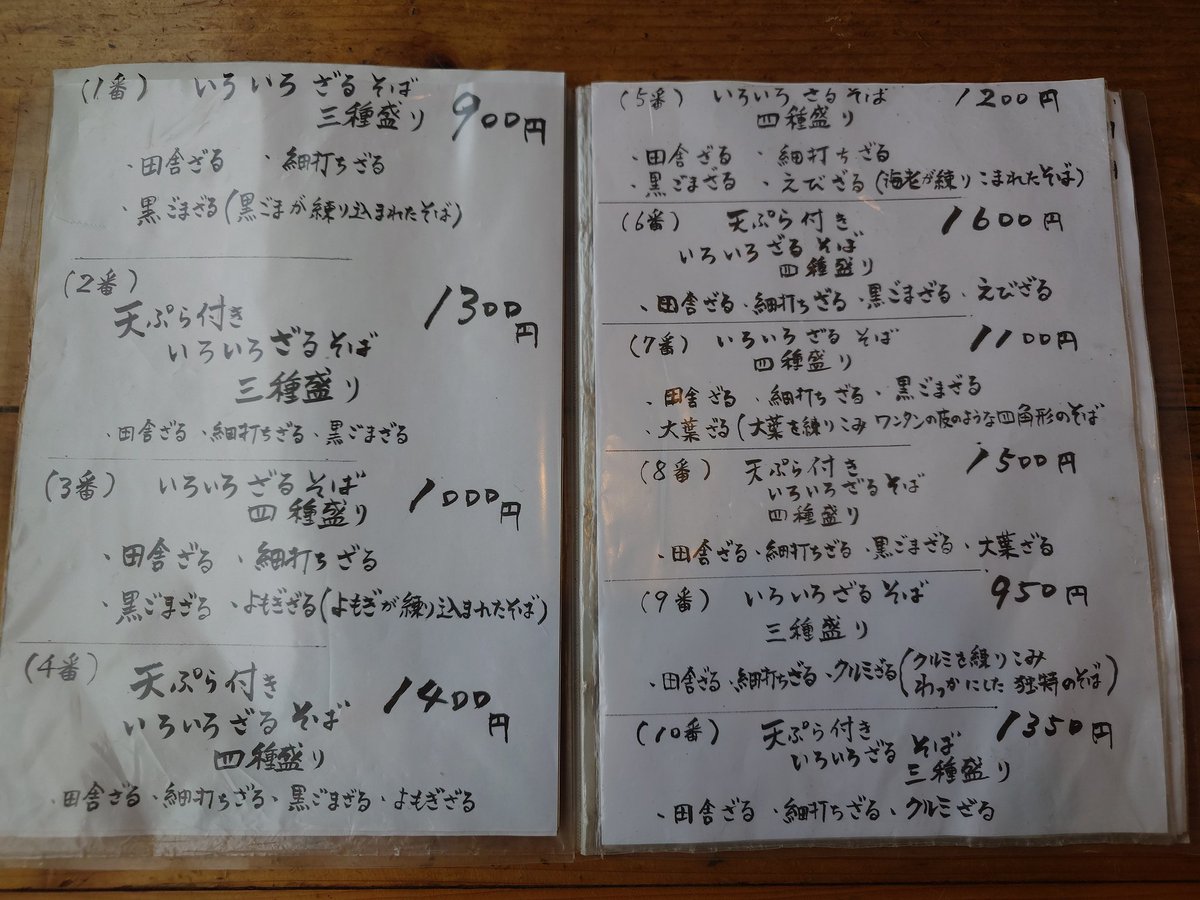 (1番) いろいろ ざる そば
三種盛り 900円
・田舎ざる ・細打ちざる
・黒ごまざる(黒ごまが練り込まれたそば)
(2番)
天ぷら付き 1300円
いろいろざるそば
三種盛り
・田舎ざる ・細打ちざる ・黒ごまざる
(3番) いろいろざるそば
四種盛り 1000円
・田舎ざる ・細打ちざる
・黒ごまざる ・よもぎざる(よもぎが練り込まれたそば)
(4番) 天ぷら付き 1400円
いろいろざる そば
四種盛り
・田舎ざる ・細打ちざる ・黒ごまざる ・よもぎざる
(5番) いろいろ ざる そば 1200円
四種盛り
・田舎ざる ・細打ちざる
・黒ごまざる ・えびざる(海老が練りこまれたそば)
(6番) 天ぷら付き 1600円
いろいろ ざる そば
四種盛り
・田舎ざる ・細打ちざる ・黒ごまざる ・えびざる
(7番) いろいろざる そば 1100円
四種盛り
・田舎ざる ・細打ちざる ・黒ごまざる
・大葉ざる(大葉を練りこみ ワンタンの皮のような四角形のそば
(8番) 天ぷら付き 1500円
いろいろざるそば
四種盛り
・田舎ざる ・細打ちざる ・黒ごまざる ・大葉ざる
(9番) いろいろざる そば 950円
三種盛り
・田舎ざる ・細打ちざる ・クルミざる(クルミを練りこみ
わっかにした 独特のそば)
(10番) 天ぷら付き 1350円
いろいろざる そば
三種盛り
・田舎ざる ・細打ちざる ・クルミざる